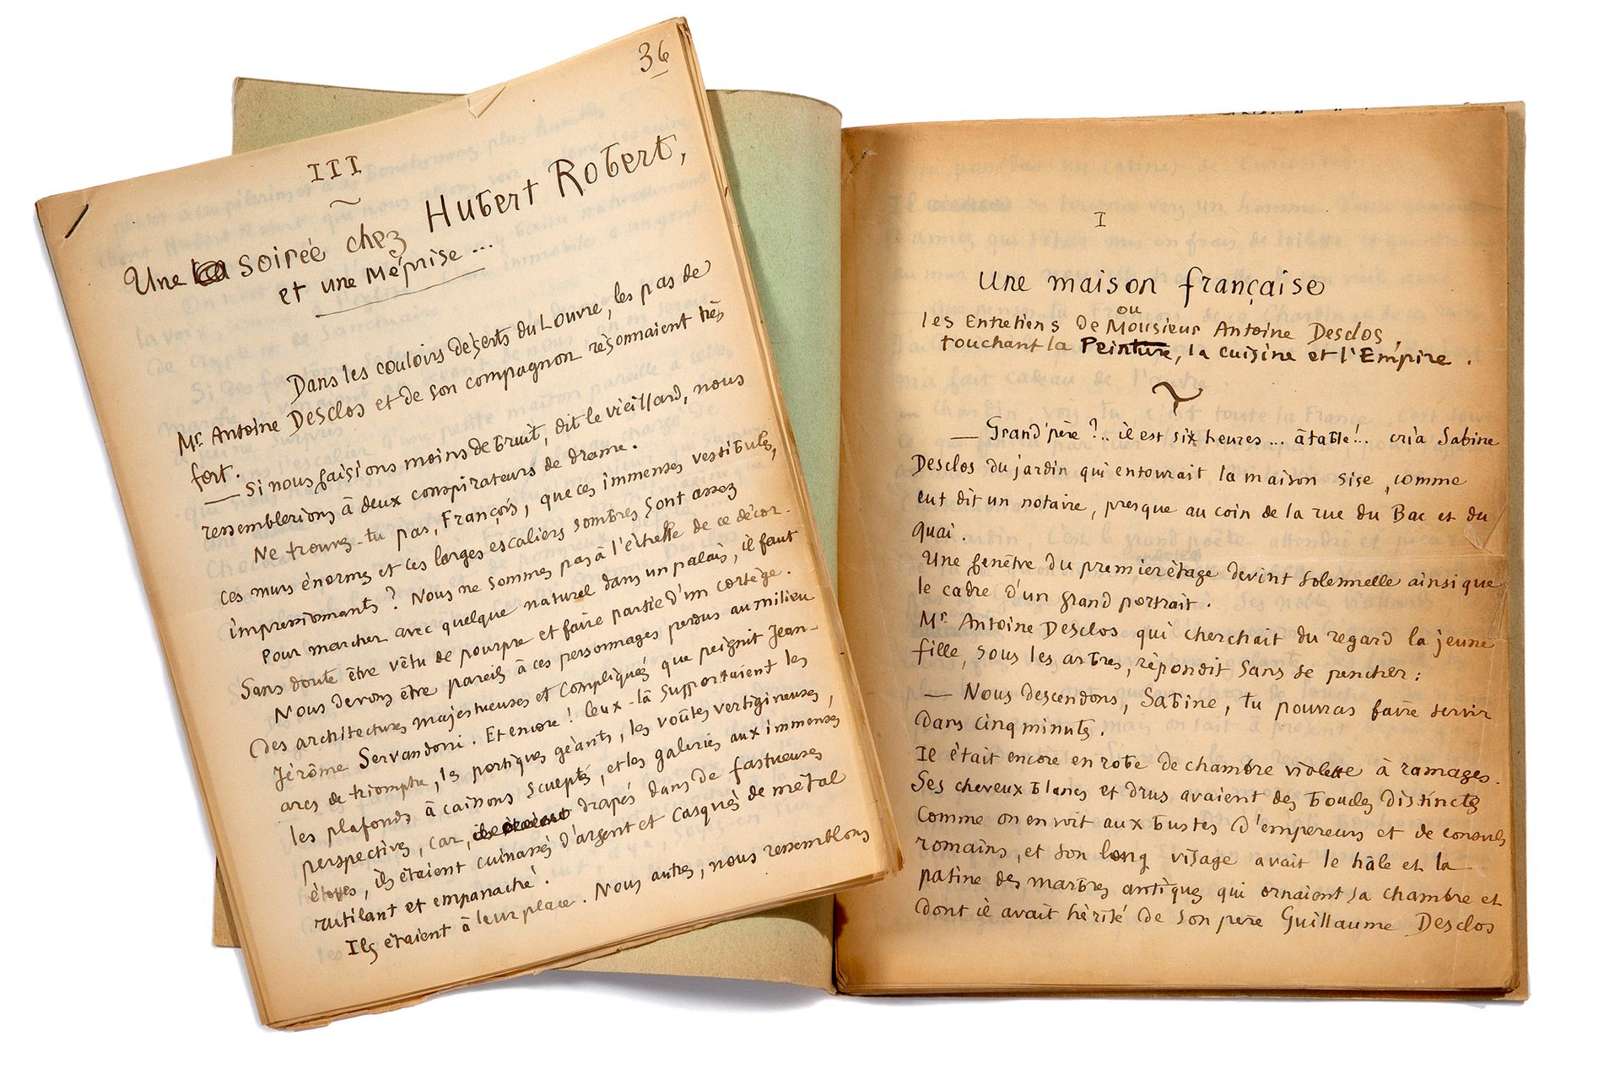 36
III
~
Une soirée chez Hubert Robert,
et une Méprise ...
Dans les couloirs déserts du Louvre, les pas de
Mr. Antoine Desclos et de son compagnon résonnaient très
fort.
— Si nous faisions moins de bruit, dit le vieillard, nous
ressemblerions à deux conspirateurs de drame.
Ne trouves-tu pas, François, que ces immenses vestibules,
ces murs énormes et ces larges escaliers sombres sont assez
impressionnants ? Nous ne sommes pas à l'échelle de ce décor.
Pour marcher avec quelque naturel dans un palais, il faut
sans doute être vêtu de pourpre et faire partie d'un cortège.
Nous devons être pareils à ces personnages perdus au milieu
des architectures majestueuses et compliquées que peignit Jean-
Jérôme Servandoni. Et encore ! Ceux-là supportaient les
arcs de triomphe, les portiques géants, les voûtes vertigineuses,
les plafonds à caissons sculptés, et les galeries aux immenses
perspectives, car, drapés dans de fastueuses
étoffes, ils étaient cuirassés d'argent et casqués de métal
rutilant et empanaché.
Ils étaient à leur place. Nous autres, nous ressemblons
I
Une maison française
ou
les Entretiens de Monsieur Antoine Desclos
touchant la Peinture, la cuisine et l'Empire.
~
— Grand'père ?.. il est six heures... à table !.. cria Sabine
Desclos du jardin qui entourait la maison sise, comme
eut dit un notaire, presque au coin de la rue du Bac et du
quai.
Une fenêtre du premier étage devint solennelle ainsi que
le cadre d'un grand portrait.
Mr. Antoine Desclos qui cherchait du regard la jeune
fille, sous les arbres, répondit sans se pencher :
— Nous descendons, Sabine, tu pourras faire servir
dans cinq minutes.
Il était encore en robe de chambre violette à ramages.
Ses cheveux blancs et drus avaient des boucles distinctes
comme on en voit aux bustes d'empereurs et de consuls
romains, et son long visage avait le hâle et la
patine des marbres antiques qui ornaient sa chambre et
dont il avait hérité de son père Guillaume Desclos